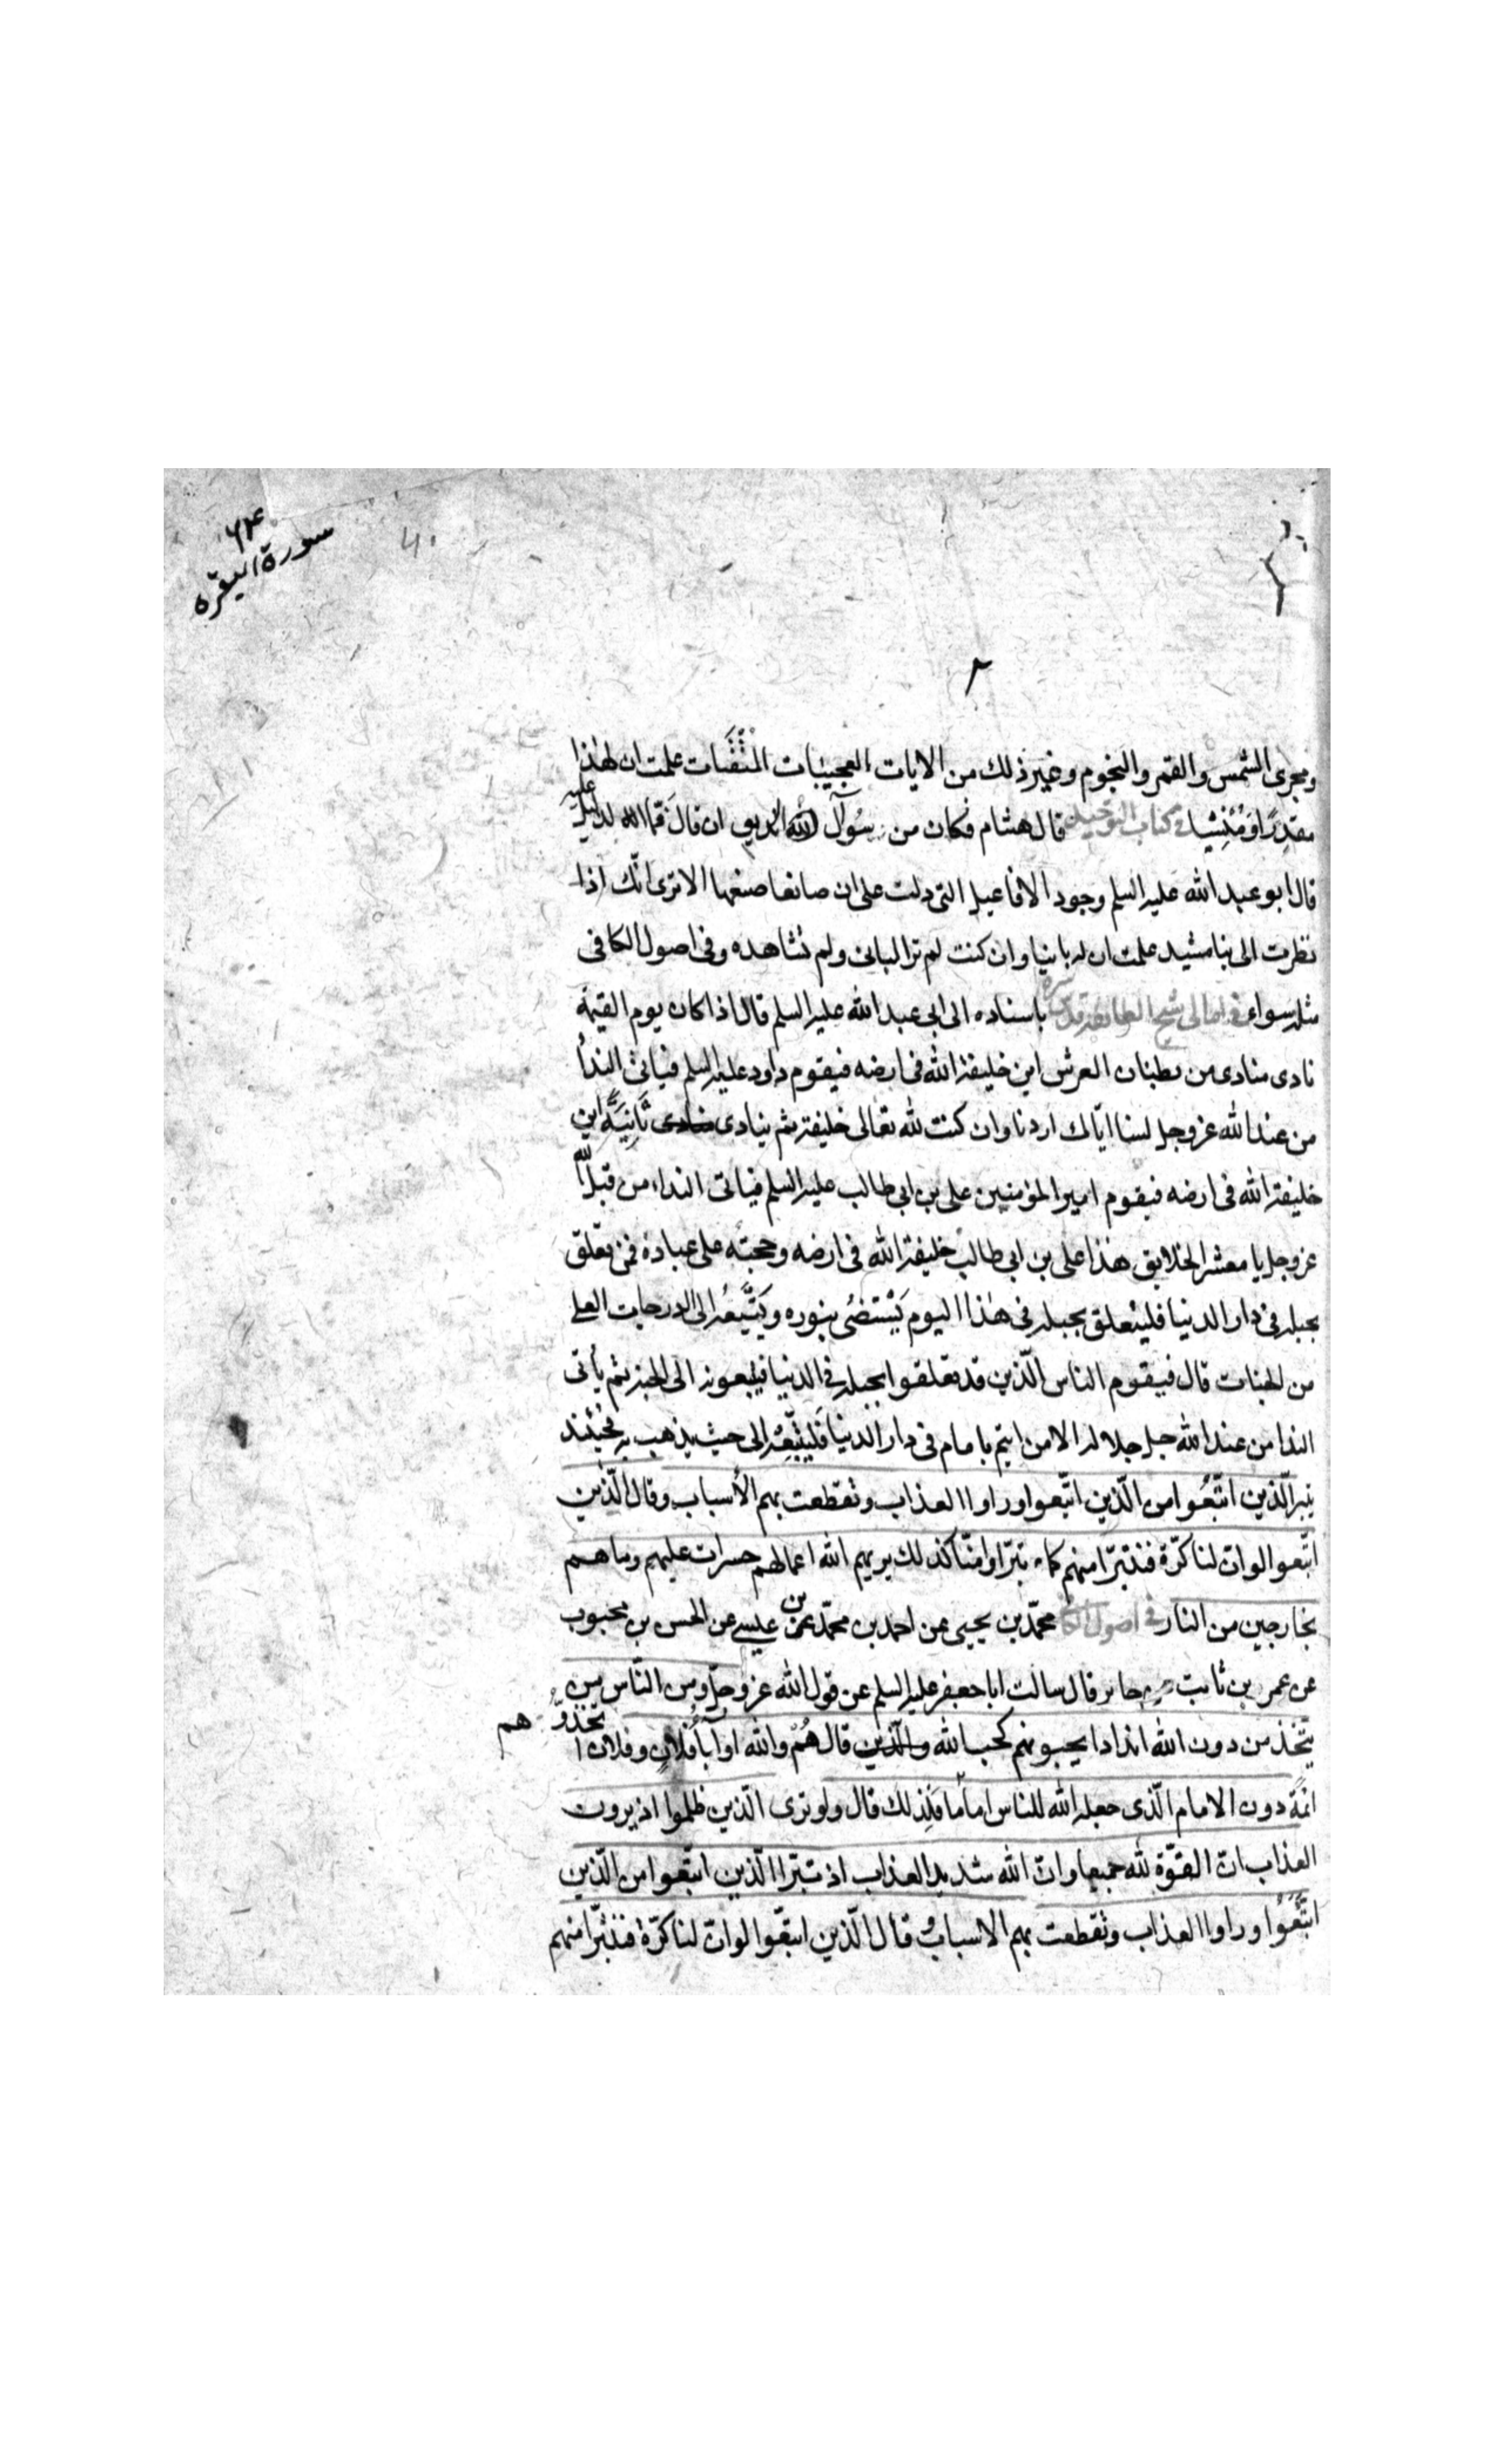 سورة البقره
ومجرى الشمس والقمر والنجوم وغير ذلك من الايات العجيبات المتقنات علمت ان لهذا
مقدرا ومنشيا فى كتاب التوحيد قال هشام فكان من سوال الزنديق ان قال فما الدليل عليه
قال ابو عبد الله عليه السلم وجود الافاعيل التى دلت على ان صانعا صنعها الا ترى انّك اذا
نظرت الى بنا مشيد علمت ان له بانيا وان كنت لم تر البانى ولم تشاهده وفى اصول الكافى
مثله سواء فى امالى شيخ الطائفه قدس سره باسناده الى ابى عبد الله عليه السلم قال اذا كان يوم القيمة
نادى منادى من بطنان العرش اين خليفة الله فى ارضه فيقوم داود عليه السلم فياتى الندأ
من عند الله عز وجل لسنا ايّاك اردنا وان كنت لله تعالى خليفة ثم ينادى منادى ثَانِيَةً اين
خليفة الله فى ارضه فيقوم امير المؤمنين على بن ابى طالب عليه السلم فياتى النداء من قبل الله
عز وجل يا معشر الخلايق هذا على بن ابى طالب خليفة الله فى ارضه وحجته على عباده فمن تعلّق
بحبله فى دار الدنيا فليتعلق بحبله فى هذا اليوم يَسْتَضئُ بنوره وَيَتَّبِعُه الى الدرجات العلى
من الجنات قال فيقوم الناس الّذين قد تعلقوا بحبله فى الدنيا فيتبعونه الى الجنة ثم يأتى
الندا من عند الله جل جلاله الا من ائتم بامام فى دار الدنيا فَليَتَّبِعْه الى حيث يذهب به فحينئذ
يتبرا الّذين اتّبُعوا من الّذين اتّبعوا وراوا العذاب وتقطعت بهم الأسباب وقال الّذين
اتّبعوا لو انّ لنا كرّة فنتبرّا منهم كما تبرّاوا منّا كذلك يريهم الله اعمالهم حسرات عليهم وما هم
بخارجين من النار فى اصول الكافى محمّد بن يحيى عن احمد بن محمّد بن عيسى عن الحسن بن محبوب
عن عمرو بن ثابت عن جابر قال سالت ابا جعفر عليه السلم عن قول الله عز وجلّ ومن النّاس من
يتّخذ من دون الله اندادا يحبونهم كحب الله والّذين قال هُمْ والله اوليآء فُلانٍ وفلان اتخذوهم
ائمّة دون الامام الّذى جعله الله للناس امامًا فلِذلك قال ولو ترى الّذين ظلموا اذ يرون
العذاب انّ القوّة لله جميعا وانّ الله شديد العذاب اذ تبرّا الّذين اتبّعوا من الّذين
اتَّبَعُوا وراوا العذاب وتقطعت بهم الاسباب وقال الّذين اتبّعوا لو انّ لنا كرّة فنتبرّا منهم